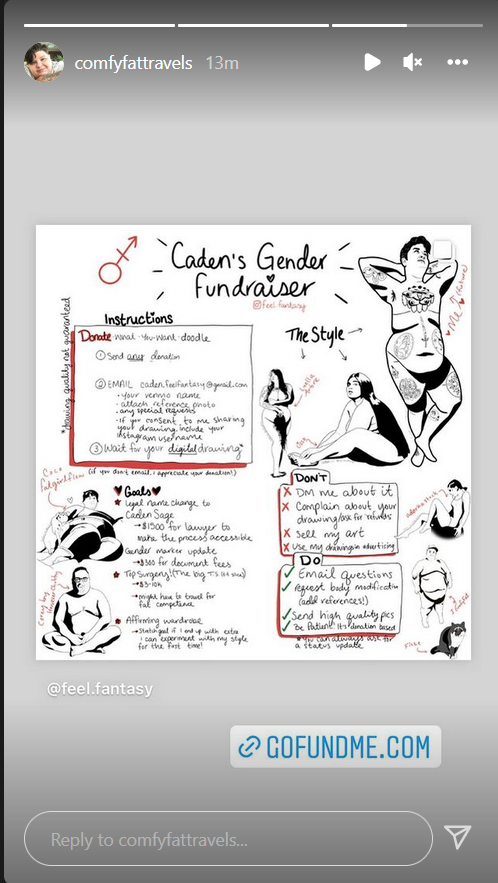 comfyfattravels 13m
Caden's Gender
Fundraiser
@feel.fantasy
Instructions
Donate-what-you-want-doodle
① Send any donation
② EMAIL caden.feelfantasy@gmail.com
· your venmo name
· attach reference photo
· any special requests
· if you consent to me sharing
your drawing, include your
instagram username
③ Wait for your digital drawing*
(if you don't email, i appreciate your donation!)
*drawing quality not guaranteed
The Style
Me! (future)
DON'T
X DM me about it
X Complain about your
drawing/ask for refunds
X Sell my art
X Use my drawing in advertising
Do
✓ Email questions
✓ Request body modification
(add references!)
✓ Send high quality pics
✓ Be Patient! It's donation based
*You can always ask for
a status update
Goals
★ Legal name change to
Caden Sage
→$1500 for lawyer to
make the process accessible
Gender marker update
→$300 for document fees
★ Top Surgery!
→$3-10k
→might have to travel for
fat competence
★ Affirming wardrobe
→Stretch goal if I end up with extra
I can experiment with my style
for the first time!
@feel.fantasy
GOFUNDME.COM
Reply to comfyfattravels...